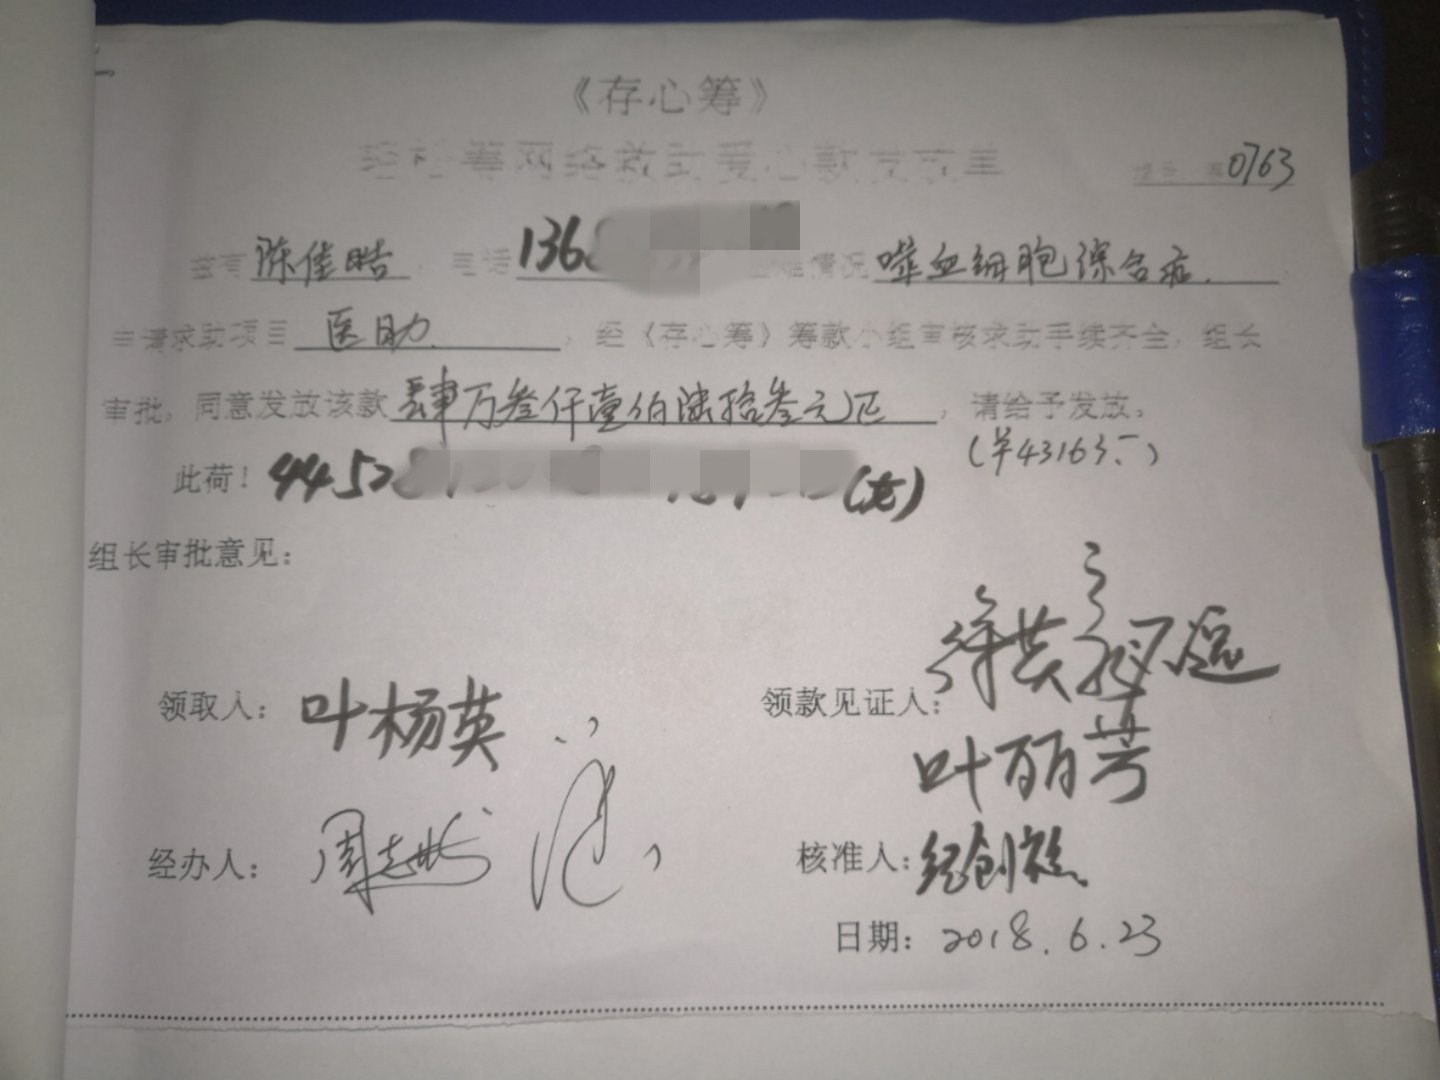 《存心筹》
轻松筹网络救助爱心款发放单 0763
兹有 陈佳皓 电话 136 情况 噬血细胞综合症
申请求助项目 医助 , 经《存心筹》筹款小组审核求助手续齐全, 组长
审批, 同意发放该款 肆万叁仟壹佰陆拾叁元正 , 请给予发放。
(¥43163元)
此荷! 44528
组长审批意见:
领取人: 叶杨英 领款见证人:
叶丽芳
经办人: 核准人:
日期: 2018.6.23